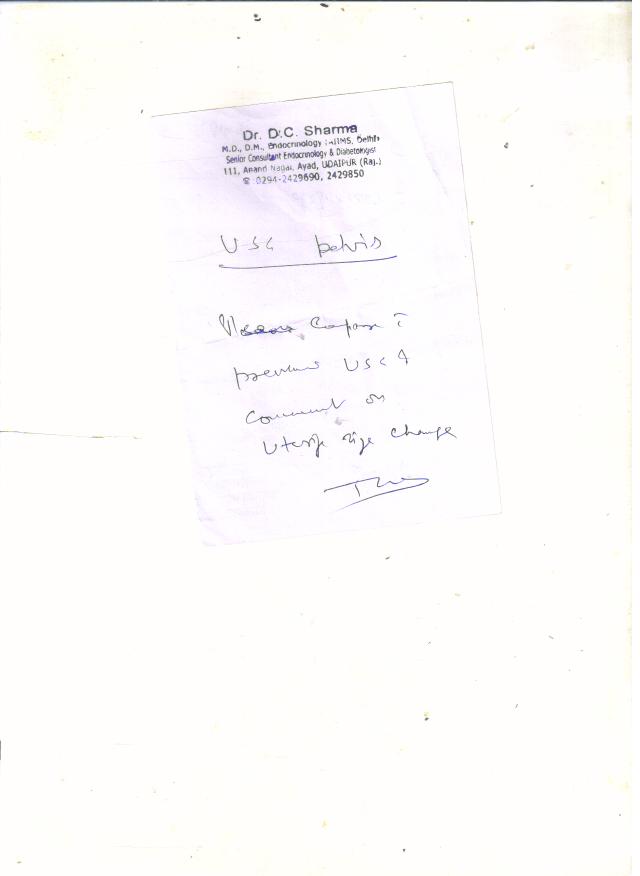 Dr. D.C. Sharma
M.D., D.M., Endocrinology : AIIMS, Delhi
Senior Consultant Endocrinology & Diabetologist
111, Anand Nagar, Ayad, UDAIPUR (Raj.)
☎ 0294-2429690, 2429850
USG pelvis
Compare c̄
previous USG &
comment on
uterine size change